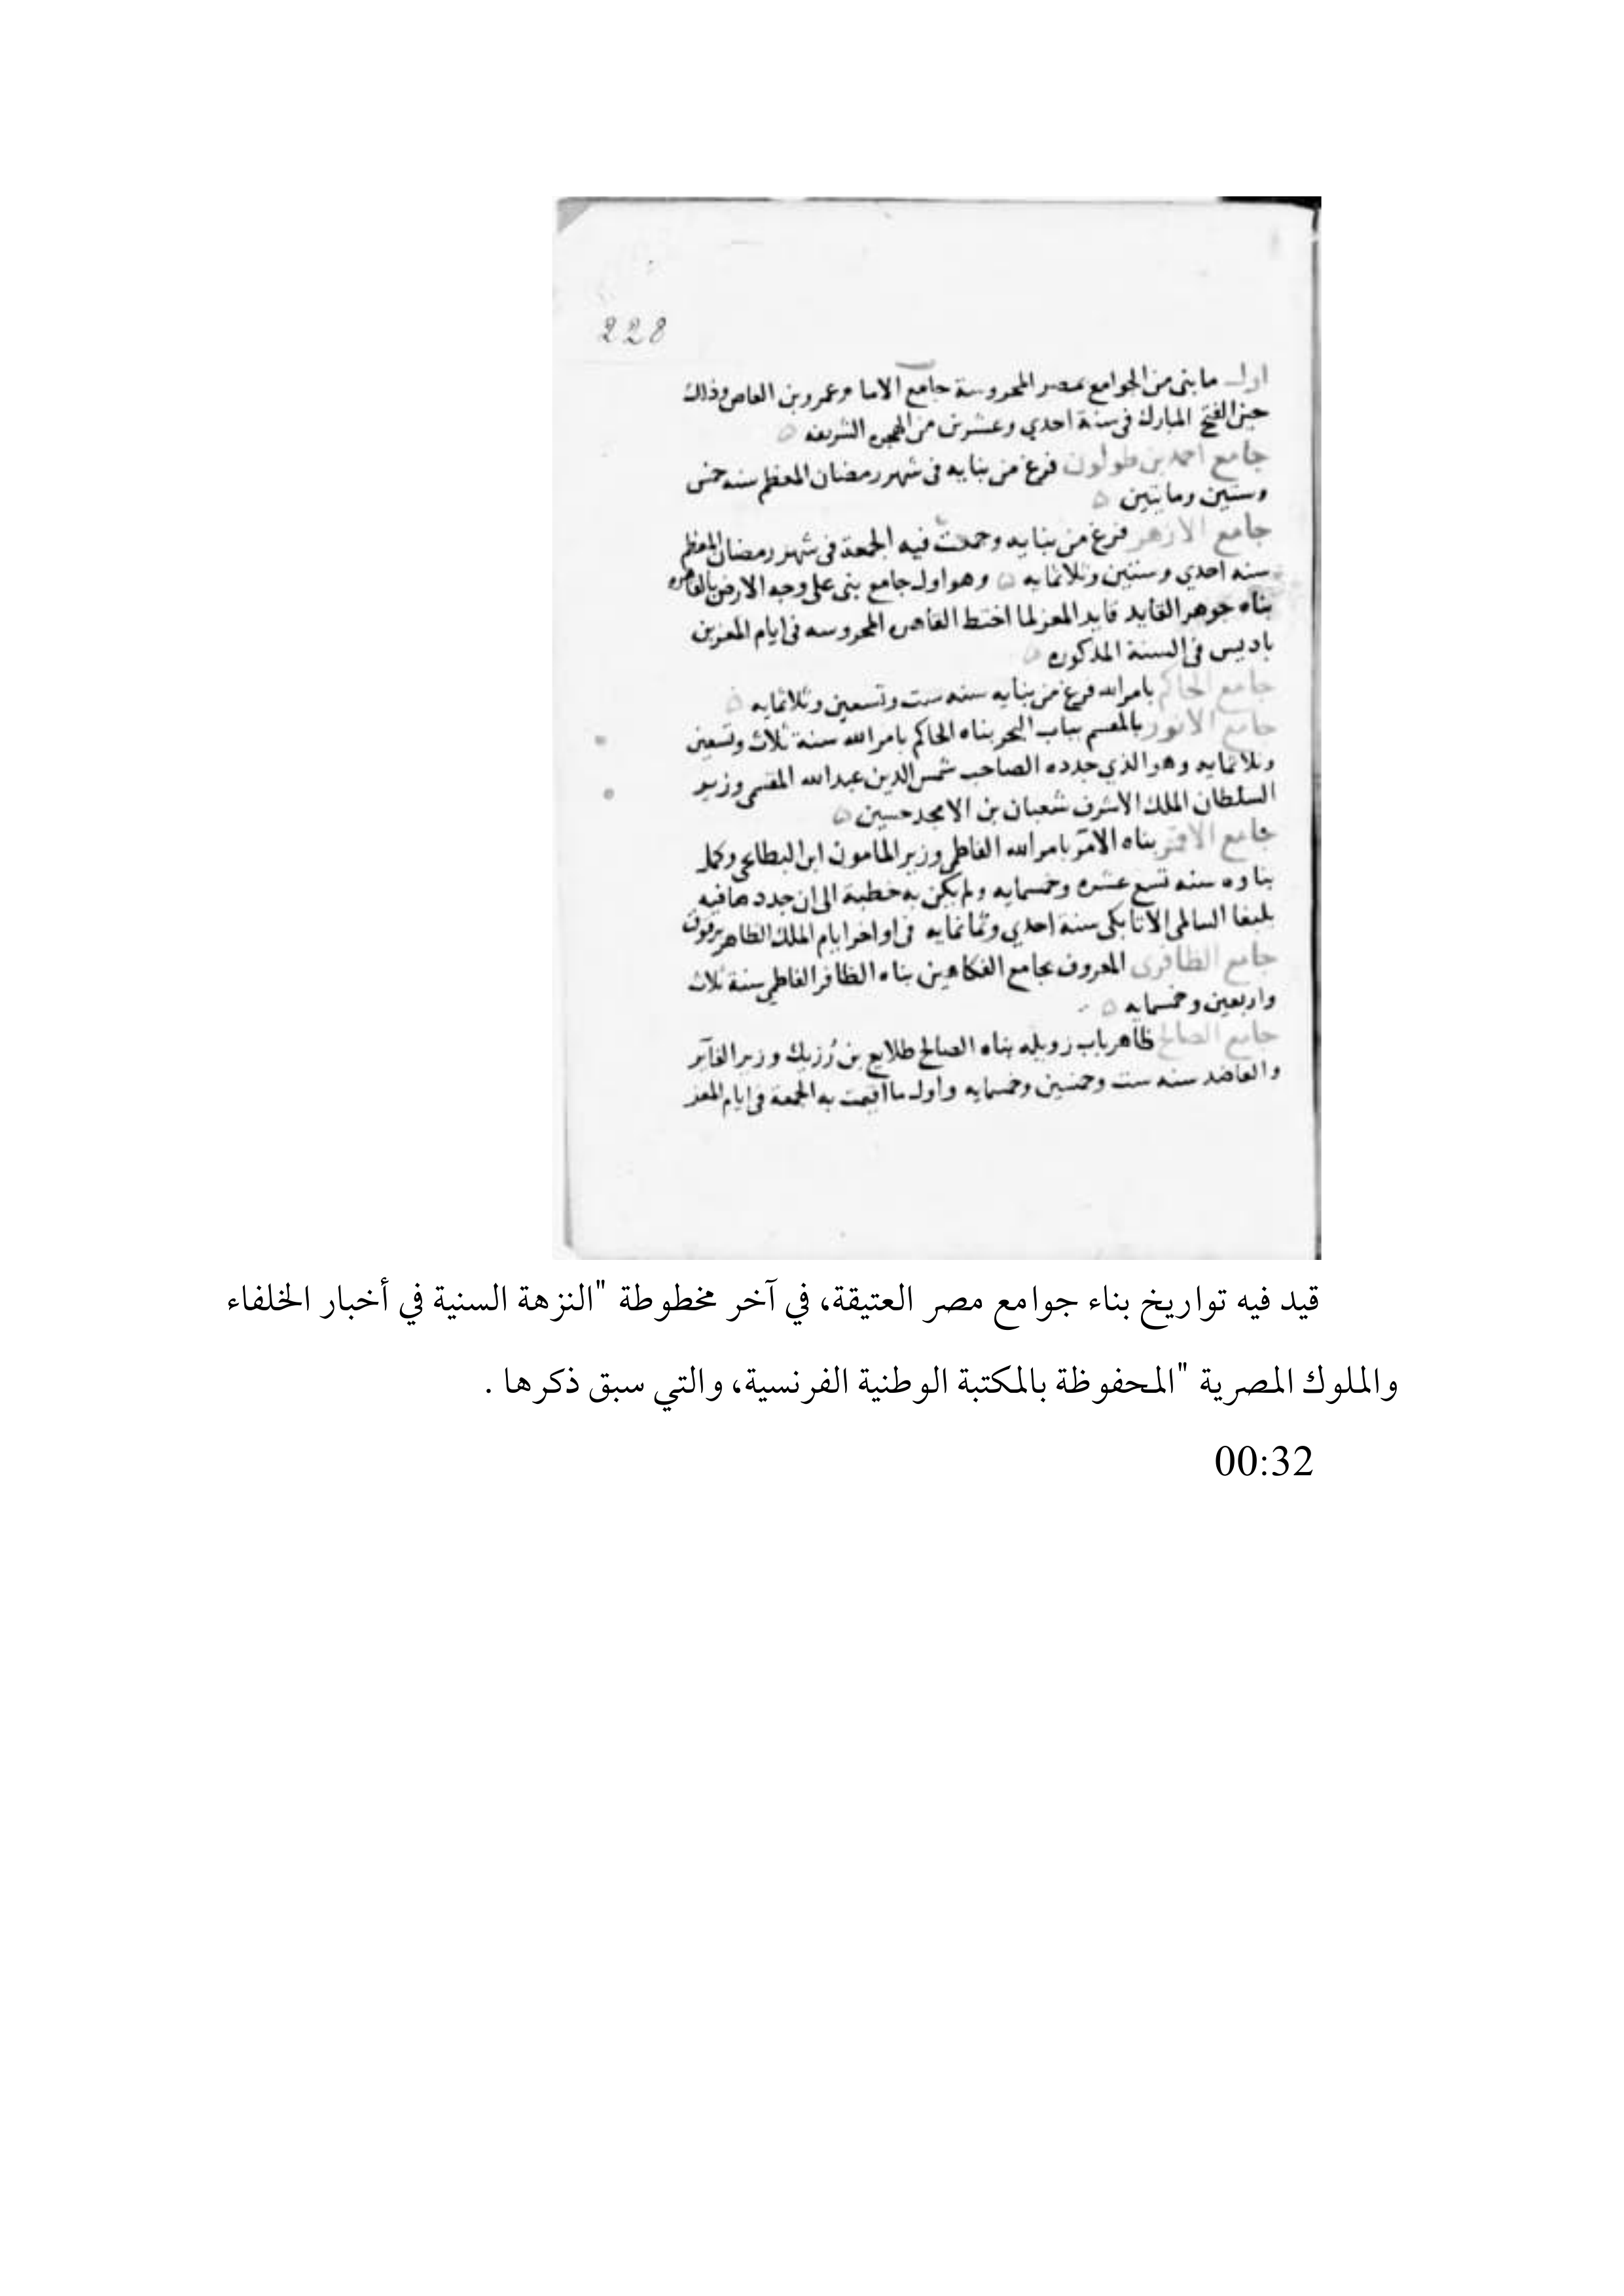 228
اول ما بنى من الجوامع بمصر المحروسة جامع الامام عمرو بن العاص وذلك
حين الفتح المبارك فى سنة احدي وعشرين من الهجره الشريفه
جامع احمد بن طولون فرغ من بنايه فى شهر رمضان المعظم سنه خمس
وستين ومايتين
جامع الازهر فرغ من بنايه وجمعت فيه الجمعة فى شهر رمضان المعظم
سنه احدي وستين وثلاثمايه وهو اول جامع بنى على وجه الارض بالقاهره
بناه جوهر القايد قايد المعز لما اختط القاهره المحروسه فى ايام المعز بن
باديس فى السنة المذكوره
جامع الحاكم بامر الله فرغ من بنايه سنه ست وتسعين وثلاثمايه
جامع الانور بالمقسم بباب البحر بناه الحاكم بامر الله سنة ثلاث وتسعين
وثلاثمايه وهو الذي جدده الصاحب شمس الدين عبد الله المقسى وزير
السلطان الملك الاشرف شعبان بن الامجد حسين
جامع الاقمر بناه الآمر بامر الله الفاطمي وزير المامون ابن البطايحى وكمل
بناوه سنه تسع عشره وخمسمايه ولم يكن به خطبة الى ان جددها فيه
يلبغا السالمى الاتابكى سنة احدي وثمانمايه فى اواخر ايام الملك الظاهر برقوق
جامع الظافرى المعروف بجامع الفكاهين بناه الظافر الفاطمي سنة ثلاث
واربعين وخمسمايه
جامع الصالح ظاهر باب زويله بناه الصالح طلايع بن رُزيك وزير الفآيز
والعاضد سنه ست وخمسين وخمسمايه واول ما اقيمت به الجمعة فى ايام المعز
قيد فيه تواريخ بناء جوامع مصر العتيقة، في آخر مخطوطة "النزهة السنية في أخبار الخلفاء
والملوك المصرية "المحفوظة بالمكتبة الوطنية الفرنسية، والتي سبق ذكرها .
00:32